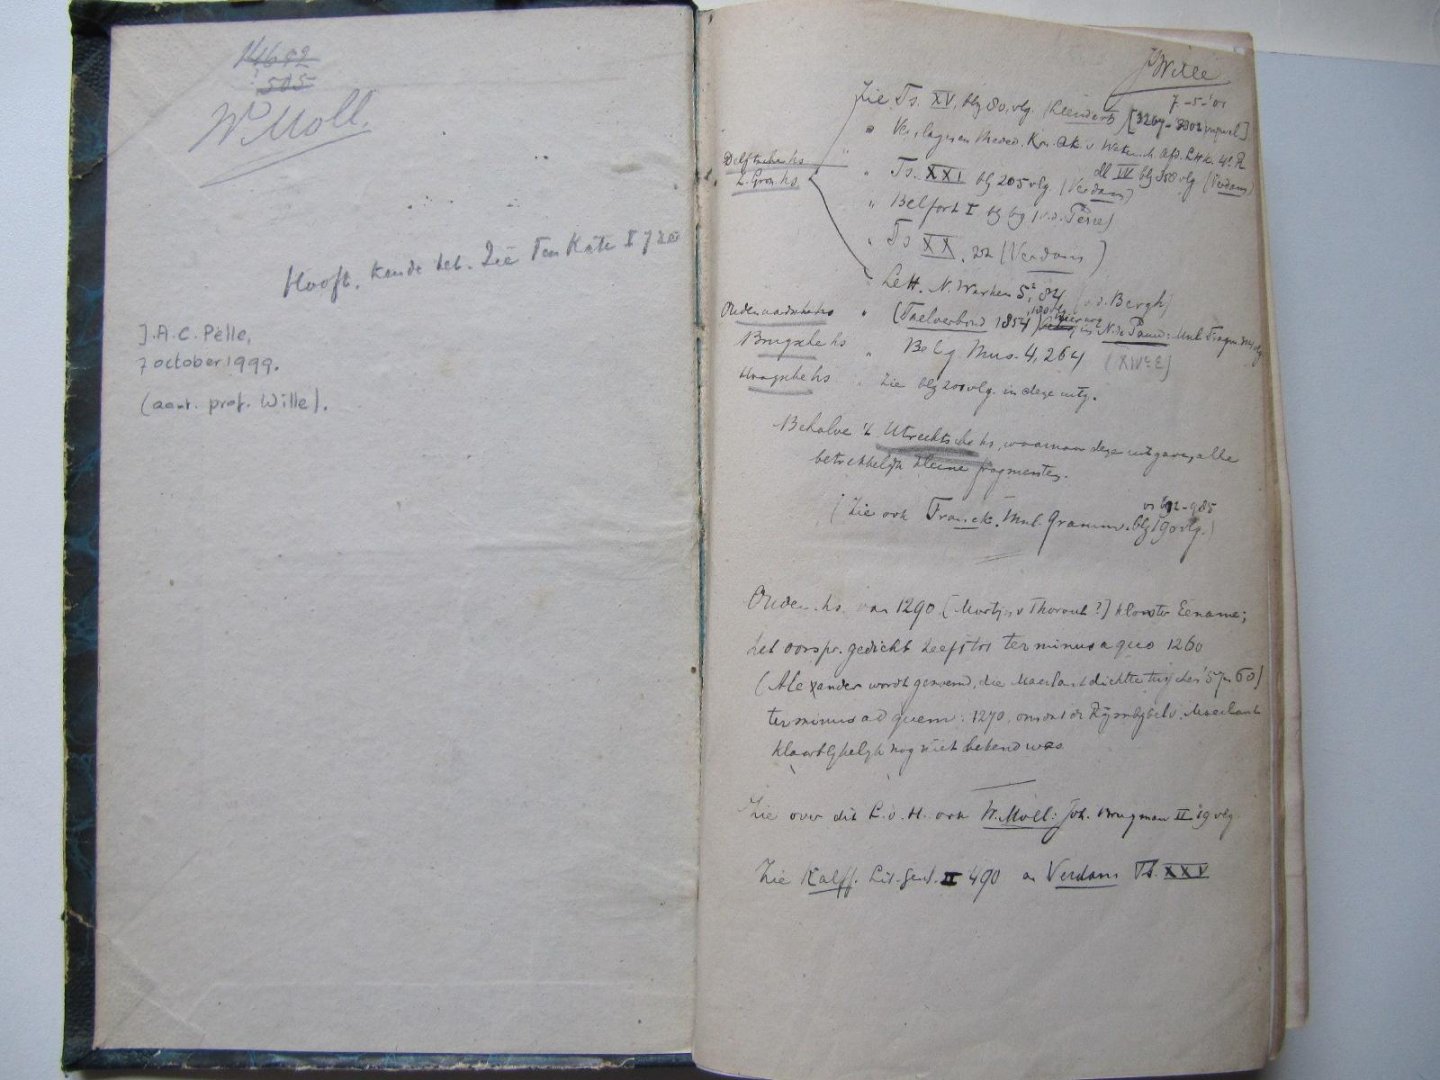 505
W Moll.
Hooft. kende het. Zie Ten Kate I 720
J.A.C. Pelle,
7 october 1999.
(aant. prof. Wille).
J Wille
7-5-'01
Zie Ts. XV, blz 80, vlg. (Leendertz) [3264-
" Verslag en Meded. Kon. Ak. v Wetensch Afd. Lttk. 4e R
dl IV blz 350 vlg. (Verdam)
Delftsche hs
" Ts. XXI blz 205 vlg. (Verdam)
L. Gron. hs
" Belfort I,
" Ts XX, (Verdam)
" Lett. N. Werken 5, 84 (v.d. Bergh)
Oudenaardsche hs " (Taelverbond 1854) N. de Pauw: Mnl. Fragm.
Brugsche hs " Belg Mus. 4, 264 (XIVe E)
Haagsche hs " Zie blz 200 vlg. in deze uitg.
Behalve 't Utrechtsche hs, waarnaar deze uitgave, alle
betrekkelijk kleine fragmenten.
(Zie ook Franck. Mnl. Gramm. blz 190 vlg.)
Ouden. hs. van 1290 (Martijn v Thorout?) klooster Eename;
het oorspr. gedicht heeft tot terminus a quo 1260
(Alexander wordt genoemd, die Maerlant dichtte tusschen '57 en 60)
terminus ad quem: 1270, omdat de Rijmbijbel v. Maerlant
klaarblijkelijk nog niet bekend was
Zie over dit L.v.H. ook W. Moll: Joh. Brugman II 19 vlg
Zie Kalff. Lit. Gesch. II 490 en Verdam Ts. XXV